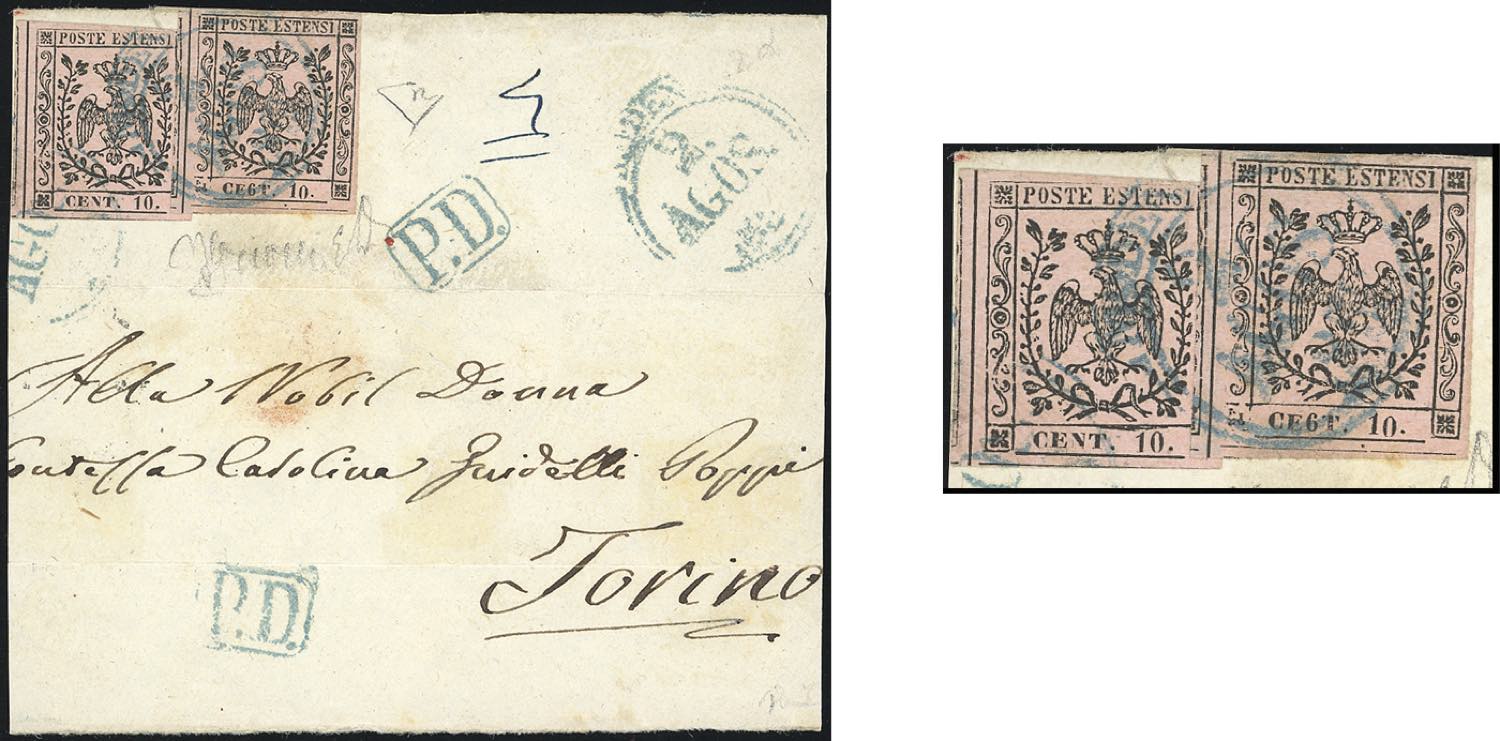 POSTE ESTENSI
CENT. 10.
POSTE ESTENSI
CE6T. 10.
P.D.
2.
AGOS
AGO
Alla Nobil Donna
Contessa Carolina Guidelli Poppi
Torino
P.D.
POSTE ESTENSI
CENT. 10.
POSTE ESTENSI
CE6T. 10.